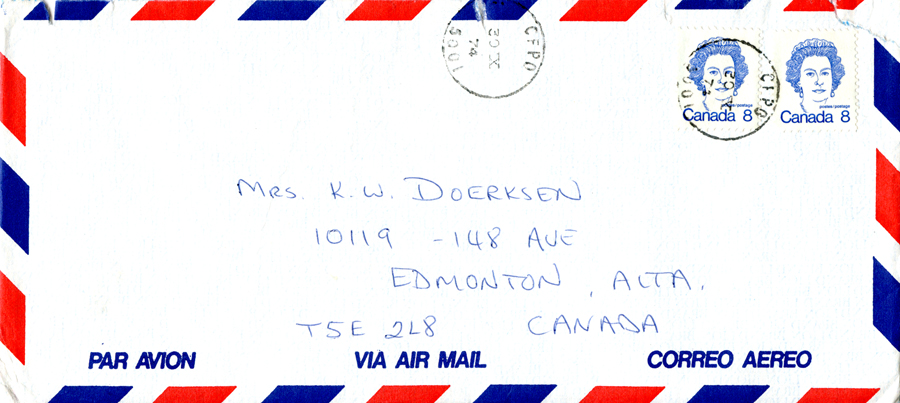 CFPO
30 X
74
5001
CFPO
30 X
74
5001
postes/postage
Canada 8
postes/postage
Canada 8
MRS. K.W. DOERKSEN
10119 -148 AVE
EDMONTON, ALTA.
T5E 2L8 CANADA
PAR AVION VIA AIR MAIL CORREO AEREO